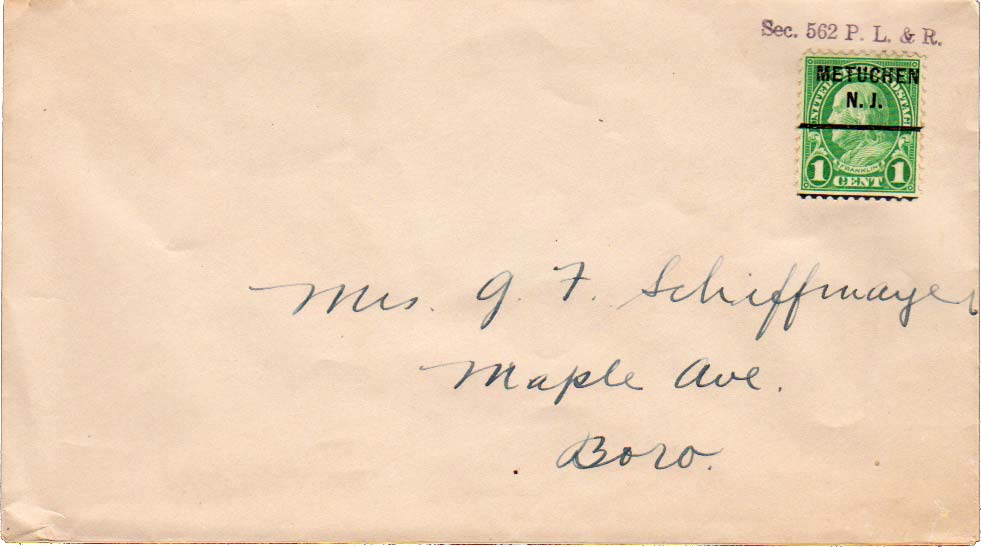 Sec. 562 P. L. & R.
UNITED STATES POSTAGE
METUCHEN
N. J.
FRANKLIN
1 CENT 1
Mrs. G. F. Schiffmayer
Maple Ave.
Boro.